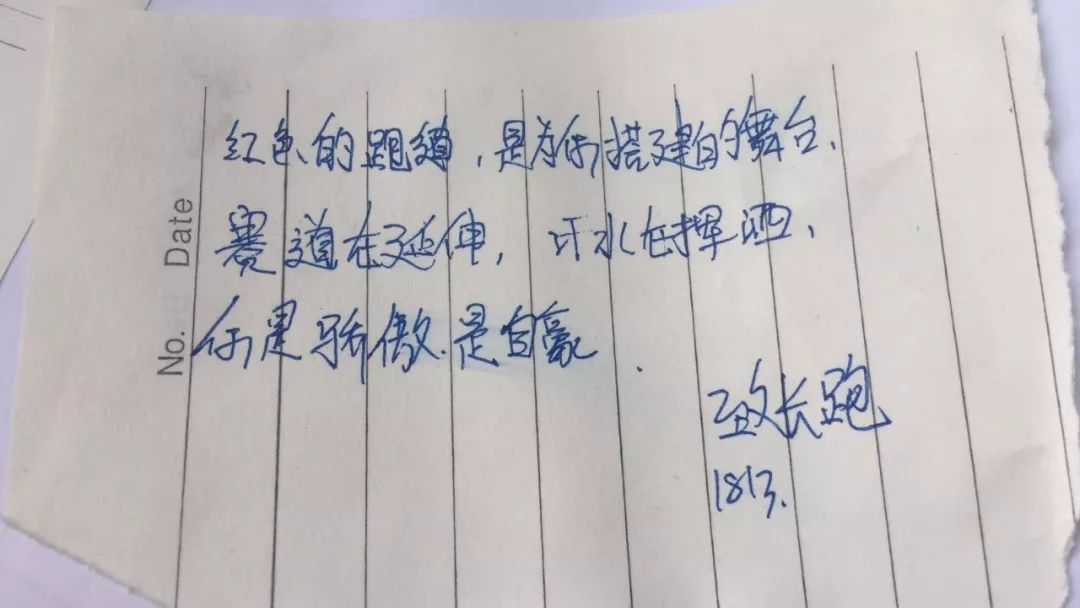 红色的跑道，是为你搭建的舞台、
赛道在延伸，汗水在挥洒、
你是骄傲.是自豪.
致长跑
1813.
No.
Date